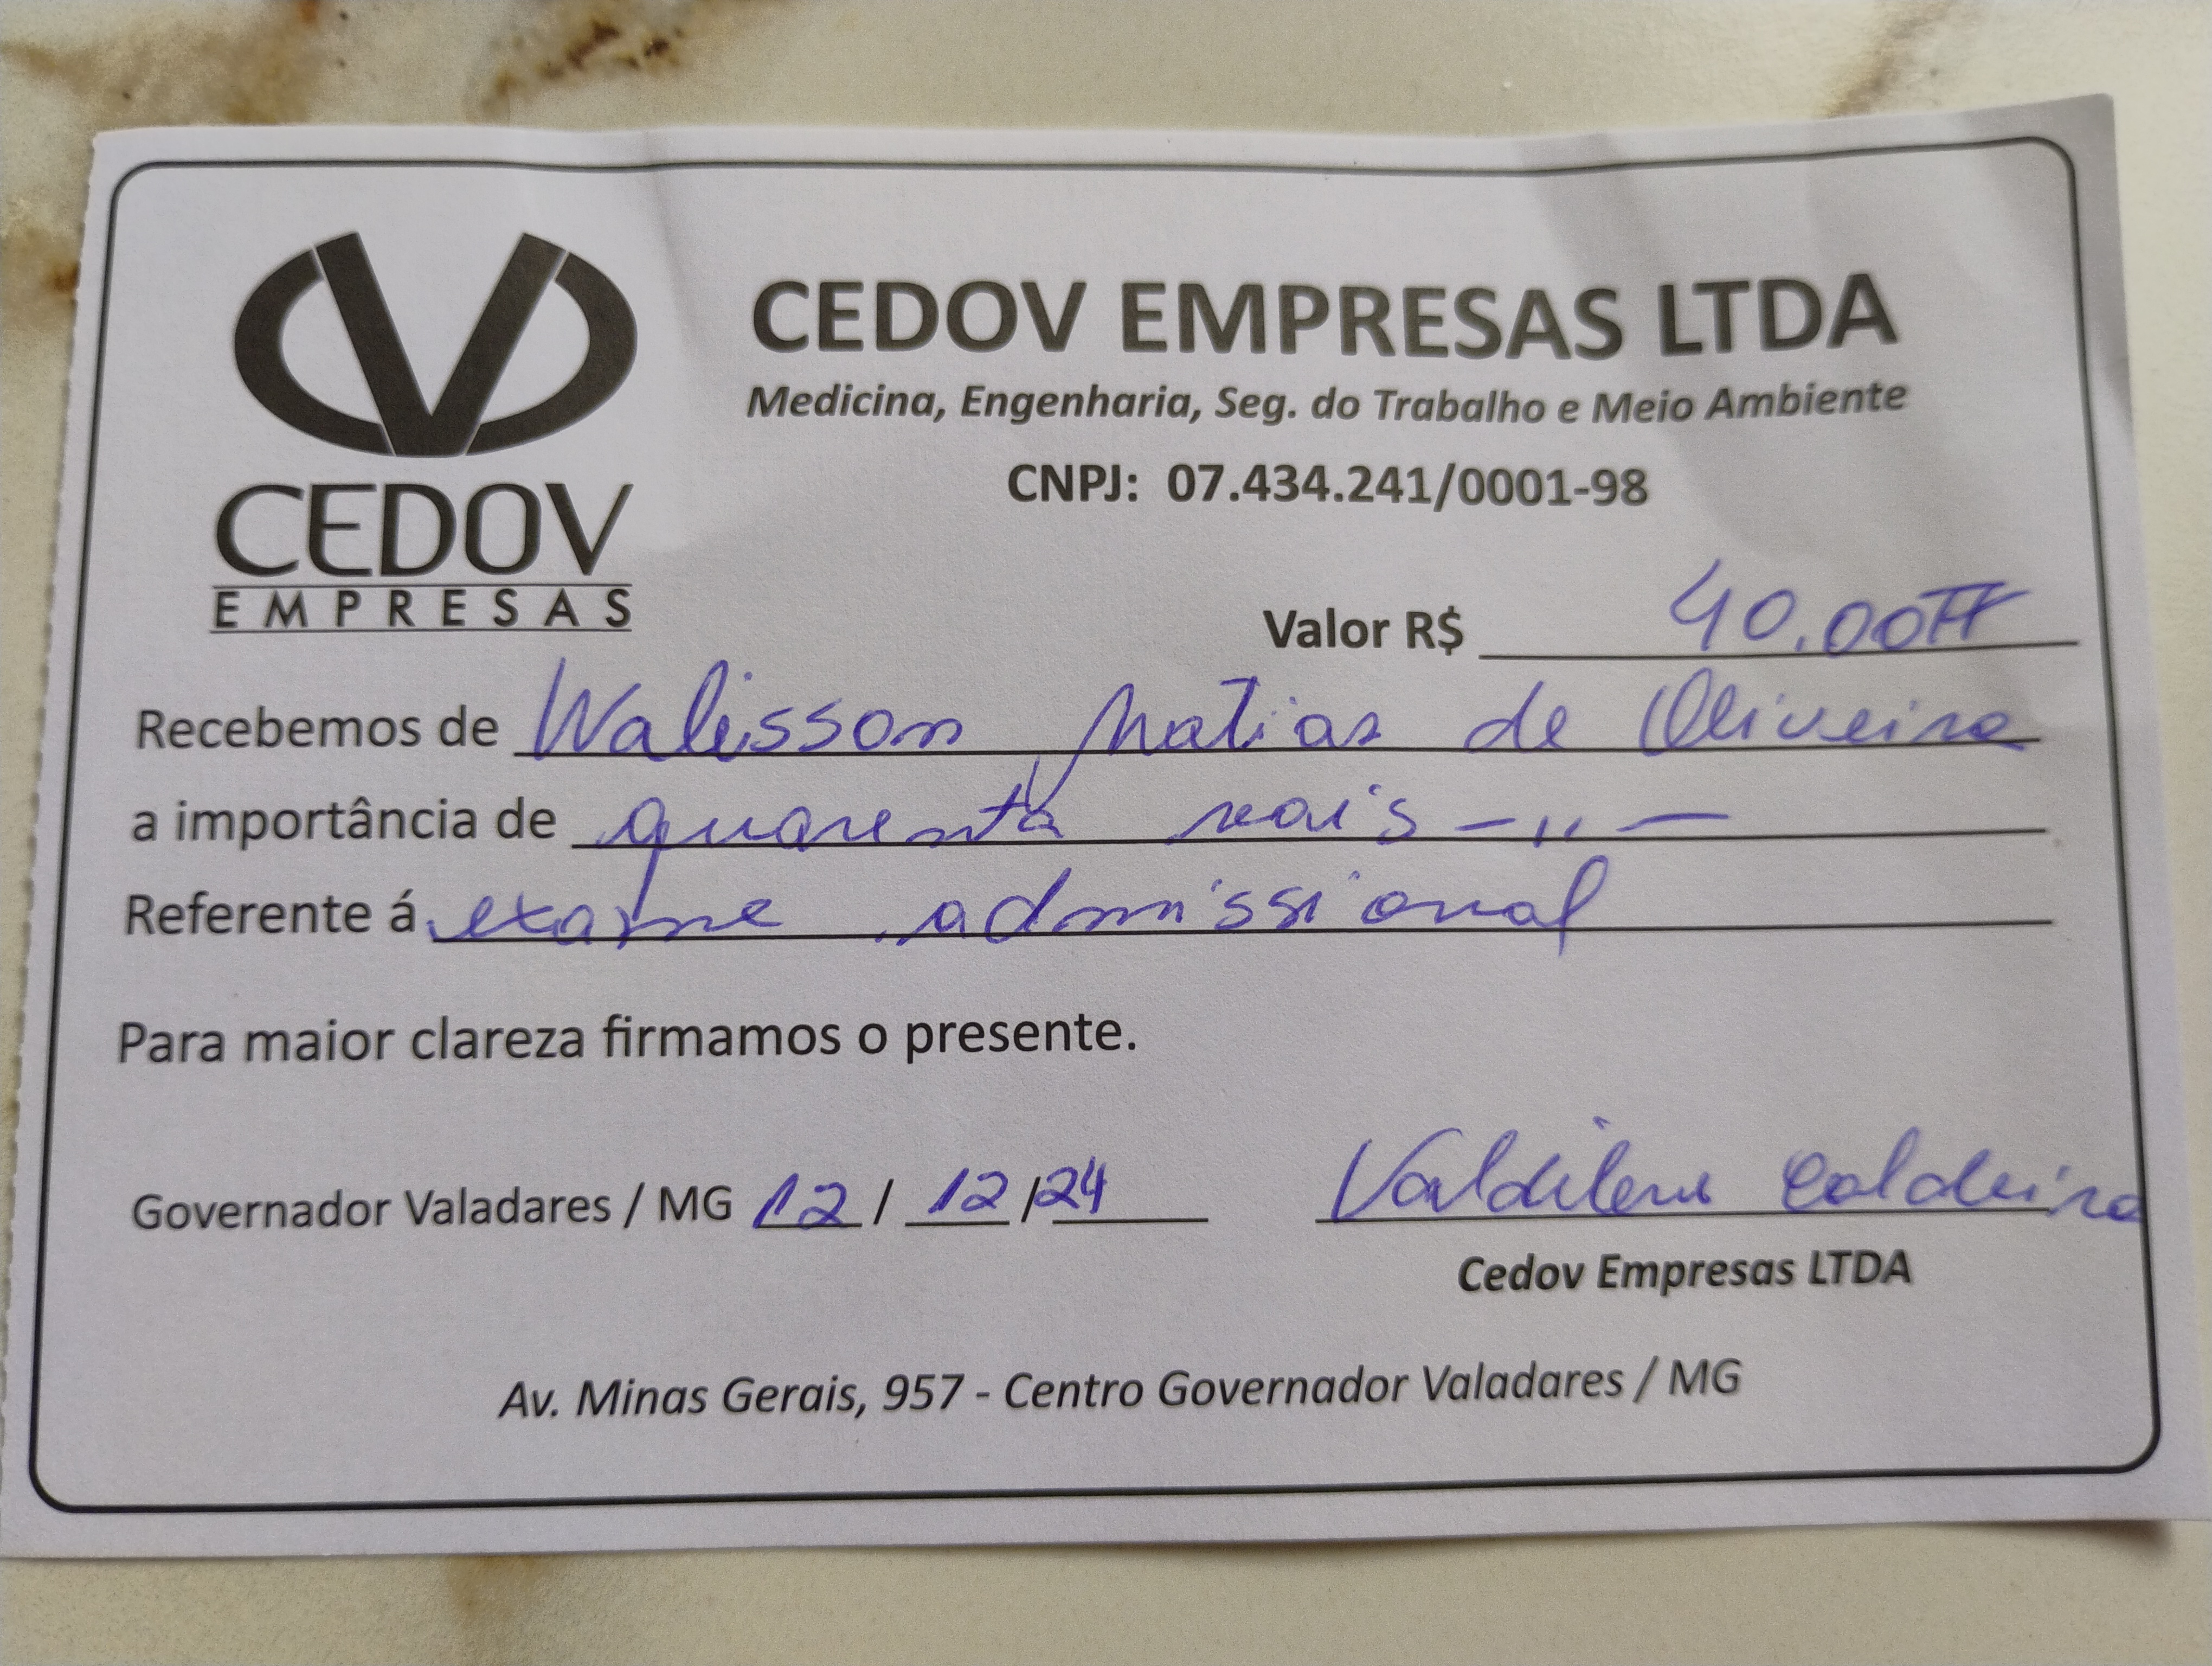 CEDOV EMPRESAS LTDA
Medicina, Engenharia, Seg. do Trabalho e Meio Ambiente
CEDOV
EMPRESAS
CNPJ: 07.434.241/0001-98
Valor R$ 40,00
Recebemos de Walisson Matias de Oliveira
a importância de quarenta reais - " -
Referente á exame admissional
Para maior clareza firmamos o presente.
Governador Valadares / MG 12 / 12 / 24 Valdilene Caldeira
Cedov Empresas LTDA
Av. Minas Gerais, 957 - Centro Governador Valadares / MG